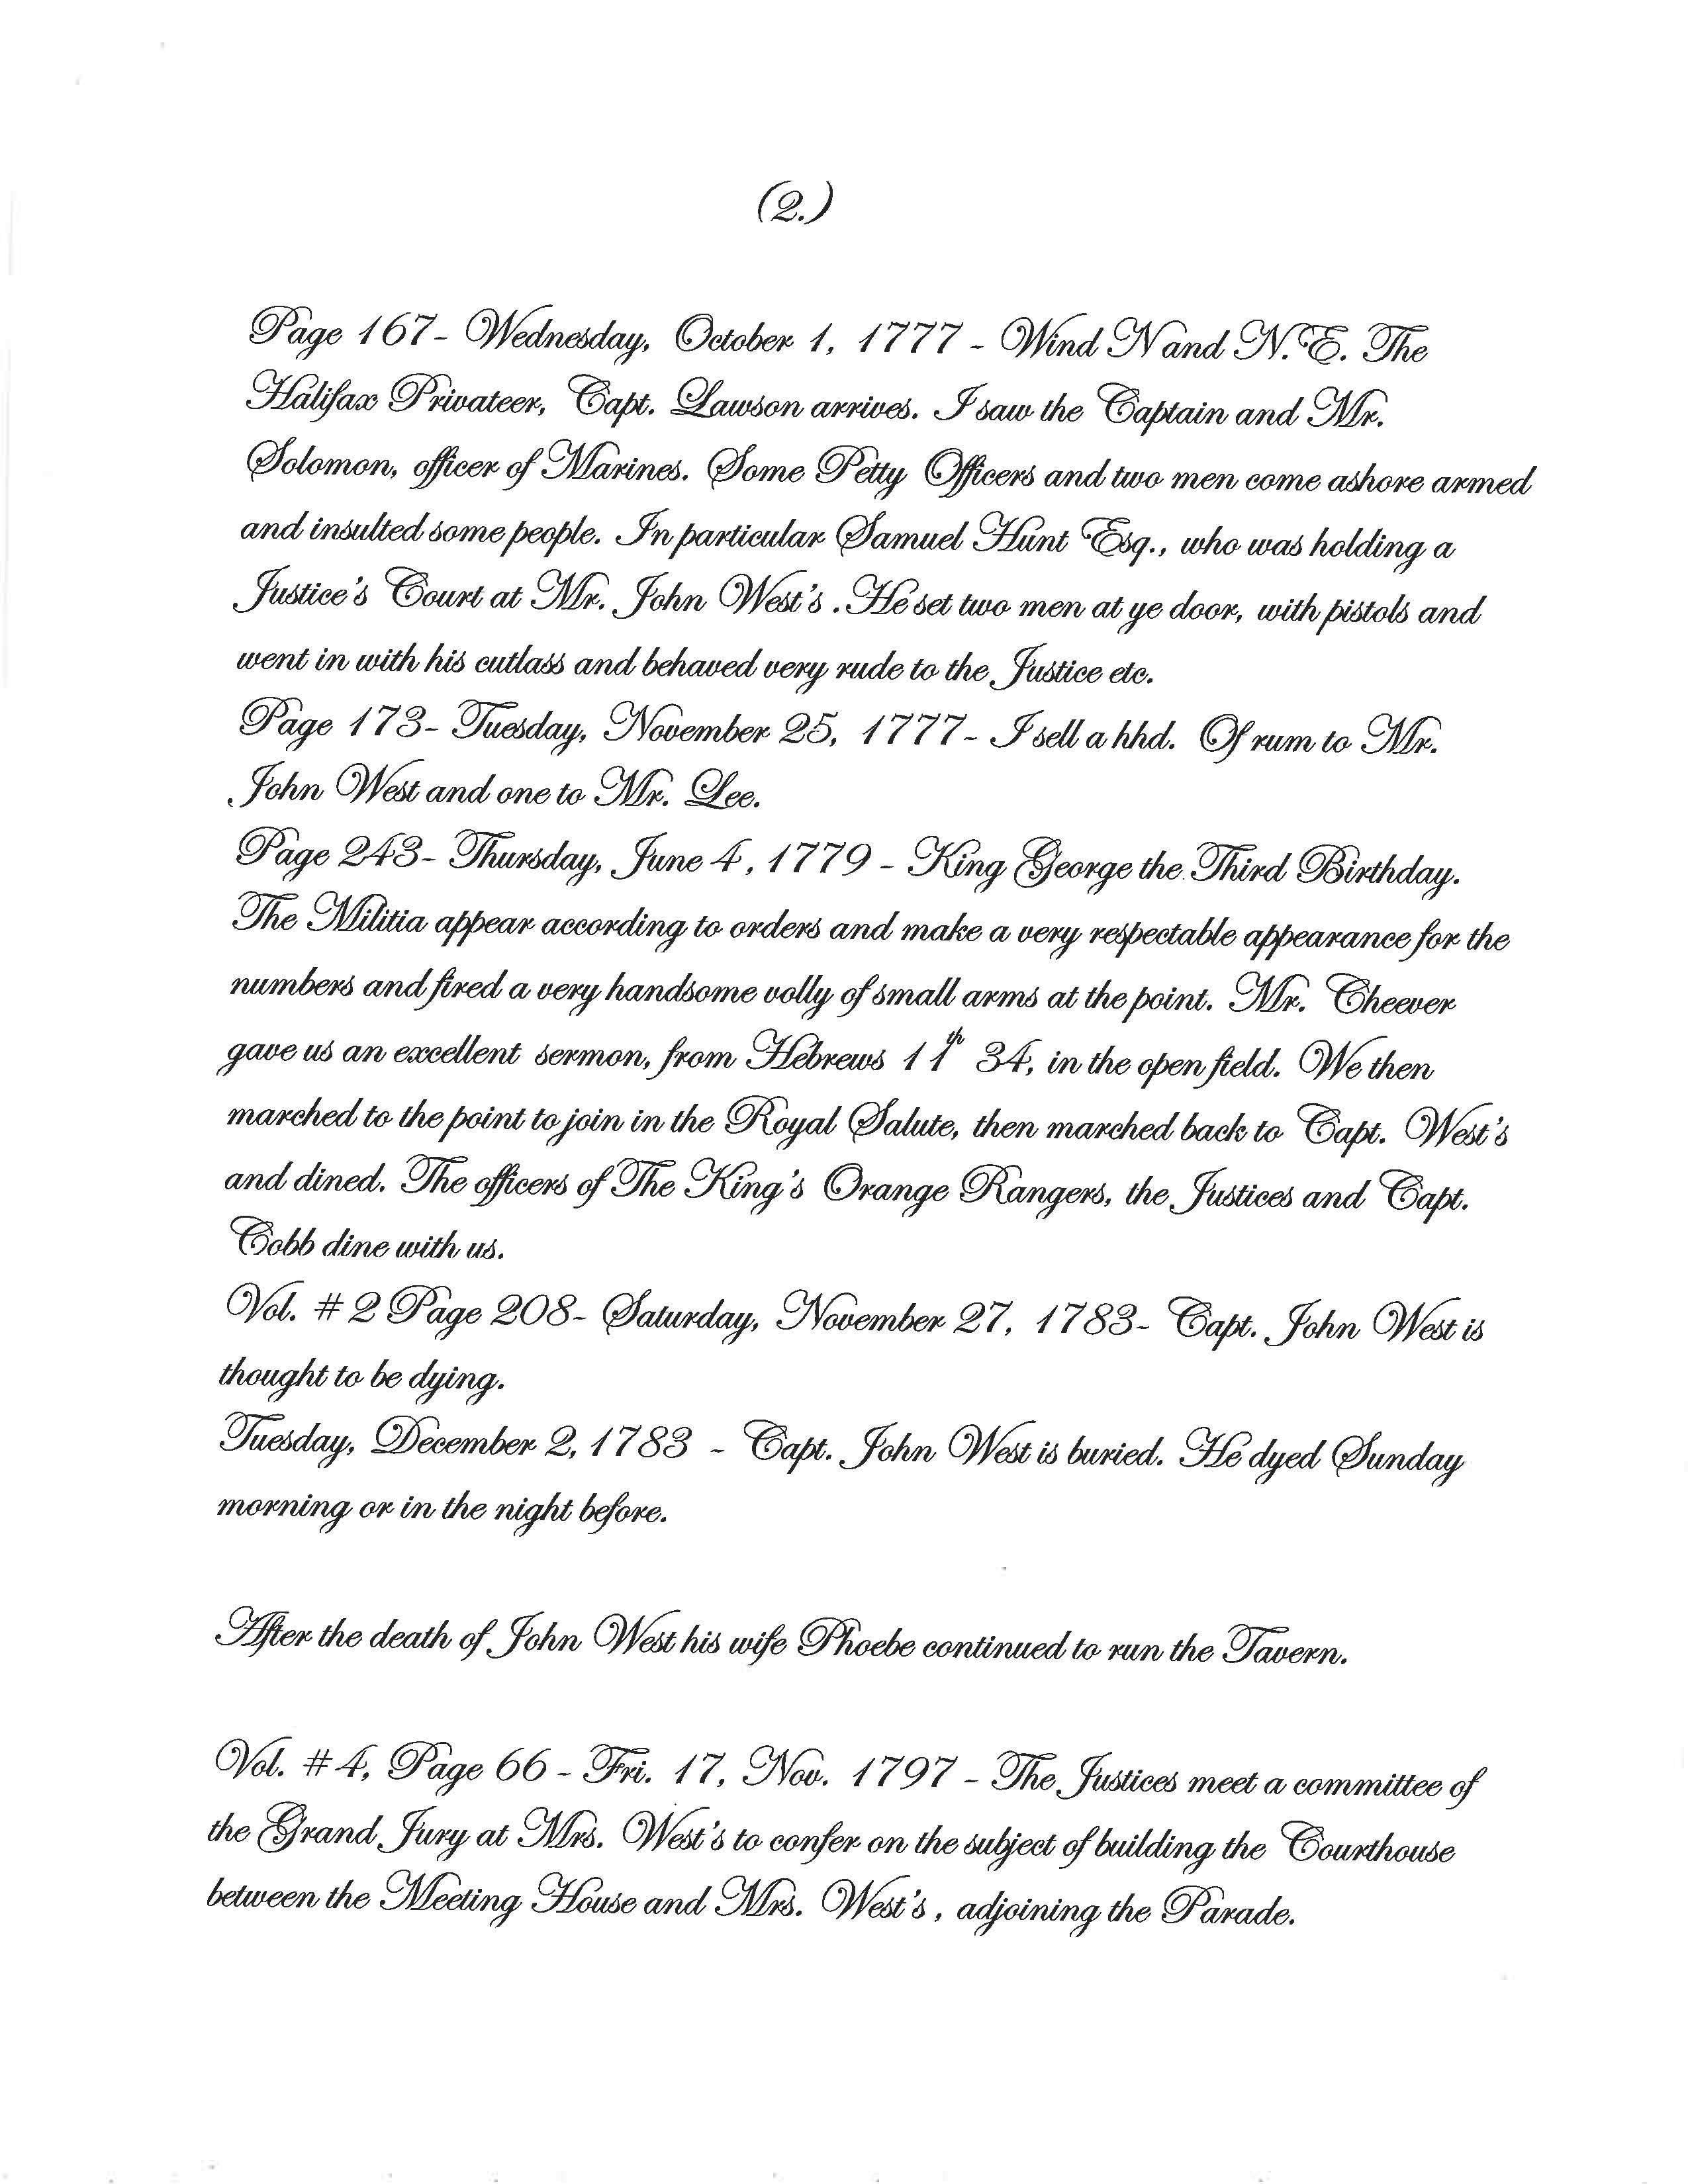 (2.)
Page 167- Wednesday, October 1, 1777 - Wind N and N.E. The
Halifax Privateer, Capt. Lawson arrives. I saw the Captain and Mr.
Solomon, officer of Marines. Some Petty Officers and two men come ashore armed
and insulted some people. In particular Samuel Hunt Esq., who was holding a
Justice's Court at Mr. John West's. He set two men at ye door, with pistols and
went in with his cutlass and behaved very rude to the Justice etc.
Page 173- Tuesday, November 25, 1777- I sell a hhd. Of rum to Mr.
John West and one to Mr. Lee.
Page 243- Thursday, June 4, 1779 - King George the Third Birthday.
The Militia appear according to orders and make a very respectable appearance for the
numbers and fired a very handsome volly of small arms at the point. Mr. Cheever
gave us an excellent sermon, from Hebrews 11th 34, in the open field. We then
marched to the point to join in the Royal Salute, then marched back to Capt. West's
and dined. The officers of The King's Orange Rangers, the Justices and Capt.
Cobb dine with us.
Vol. #2 Page 208- Saturday, November 27, 1783- Capt. John West is
thought to be dying.
Tuesday, December 2, 1783 - Capt. John West is buried. He dyed Sunday
morning or in the night before.
After the death of John West his wife Phoebe continued to run the Tavern.
Vol. #4, Page 66 - Fri. 17, Nov. 1797 - The Justices meet a committee of
the Grand Jury at Mrs. West's to confer on the subject of building the Courthouse
between the Meeting House and Mrs. West's, adjoining the Parade.